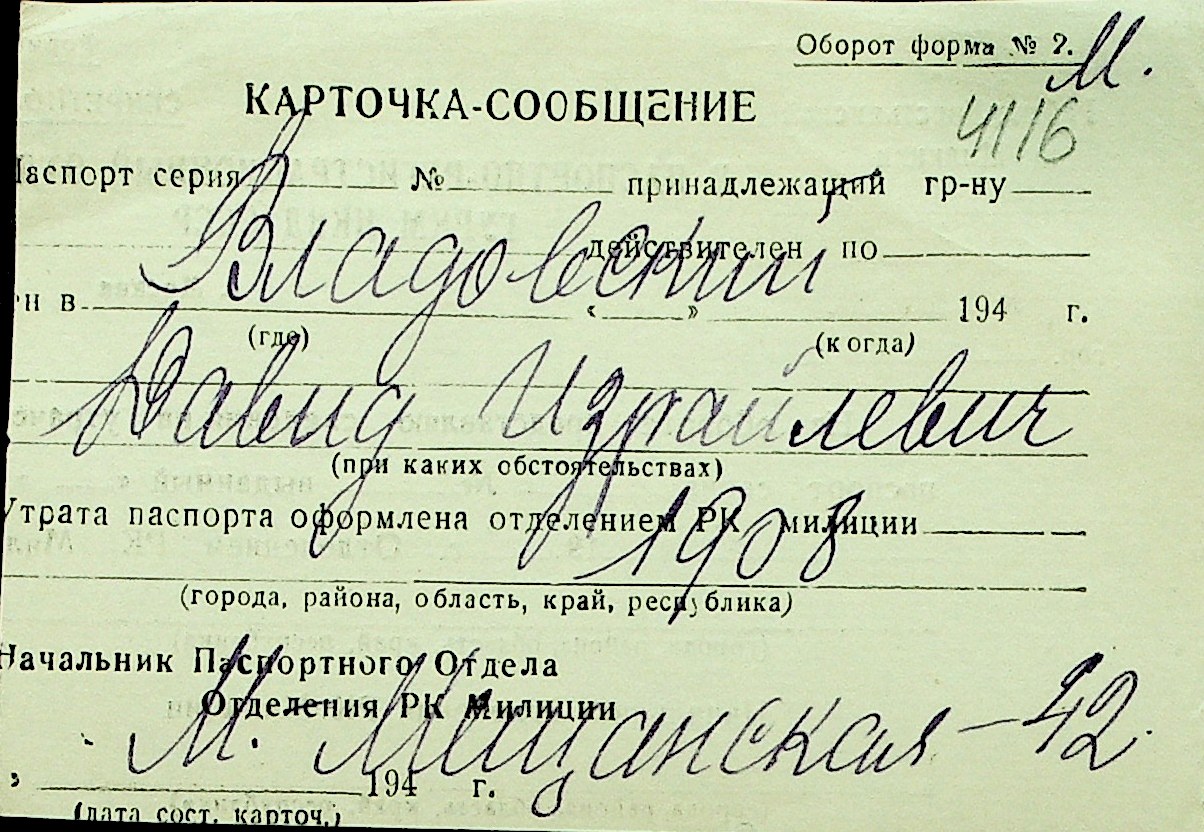 Оборот форма № 2.
М.
КАРТОЧКА-СООБЩЕНИЕ
4116
Паспорт серия № принадлежащий гр-ну
Владовский
действителен по
ен в « » 194 г.
(где) (когда)
Давид Израйлевич
(при каких обстоятельствах)
Утрата паспорта оформлена отделением РК милиции
1908
(города, района, область, край, республика)
Начальник Паспортного Отдела
Отделения РК Милиции
М. Мещанская – 42.
194 г.
(дата сост. карточ.)